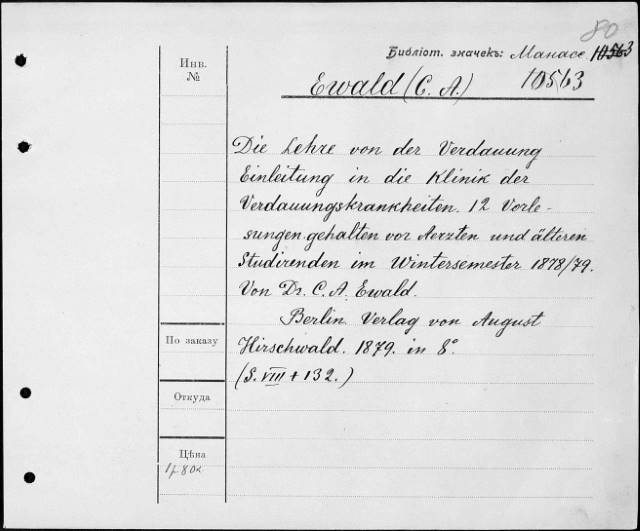 80
Библіот. значекъ: Манасе. 10563
Инв.
№
Ewald (C. A.) 10563
Die Lehre von der Verdauung
Einleitung in die Klinik der
Verdauungskrankheiten. 12 Vorle-
sungen gehalten vor Aerzten und älteren
Studirenden im Wintersemester 1878/79.
Von Dr. C. A. Ewald.
Berlin. Verlag von August
Hirschwald. 1879. in 8°.
(S. VIII + 132.)
По заказу
Откуда
Цѣна
1р 80к